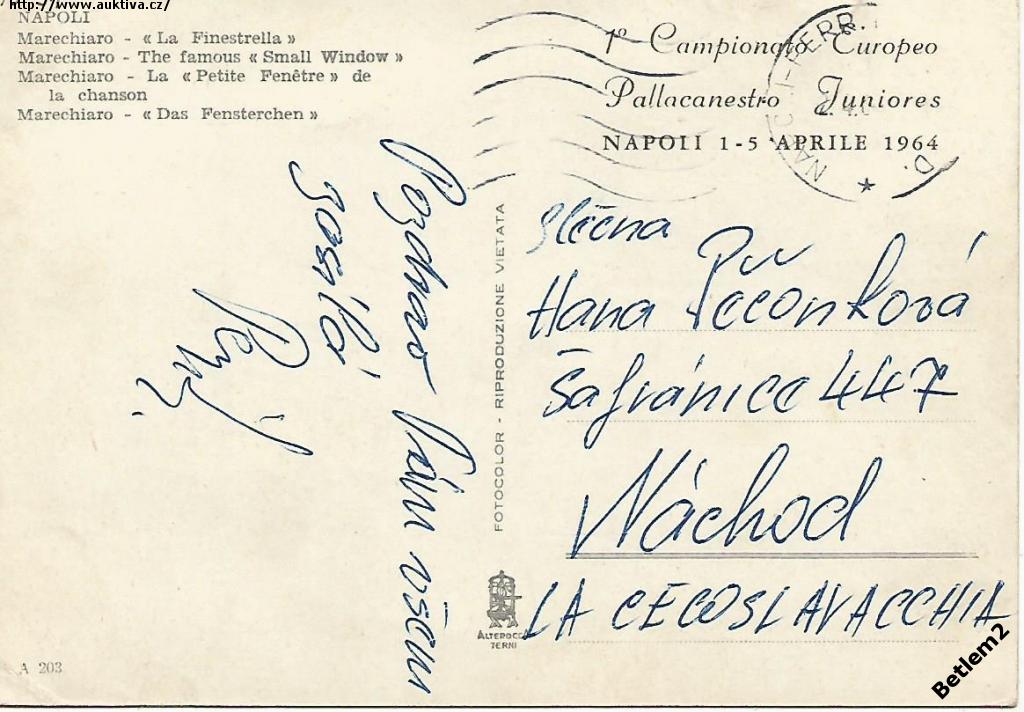 http://www.auktiva.cz/
NAPOLI
Marechiaro - « La Finestrella »
Marechiaro - The famous « Small Window »
Marechiaro - La « Petite Fenêtre » de
la chanson
Marechiaro - « Das Fensterchen »
1º Campionato Europeo
Pallacanestro Juniores
NAPOLI 1-5 APRILE 1964
Pozdrav Vám všem
posílá
FOTOCOLOR - RIPRODUZIONE VIETATA
slečna
Hana Pěčonková
Šafránice 447
Náchod
LA CECOSLAVACCHIA
ALTEROCCA
TERNI
A 203
Betlem2